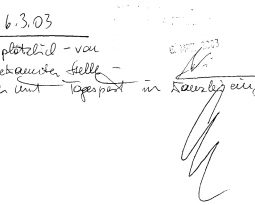 6.3.03
plötzlich - von
bekannter Stelle -
mit Tagespost in Kanzlei ein